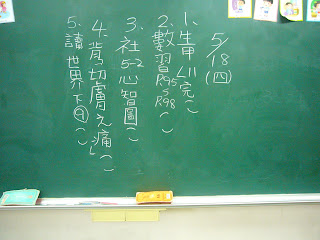 5/18(四)
1、生甲乙完( )
2、數習P.95~P.98( )
3、社5-2心智圖( )
4、背「切膚之痛」( )
5、讀世界下⑨( )